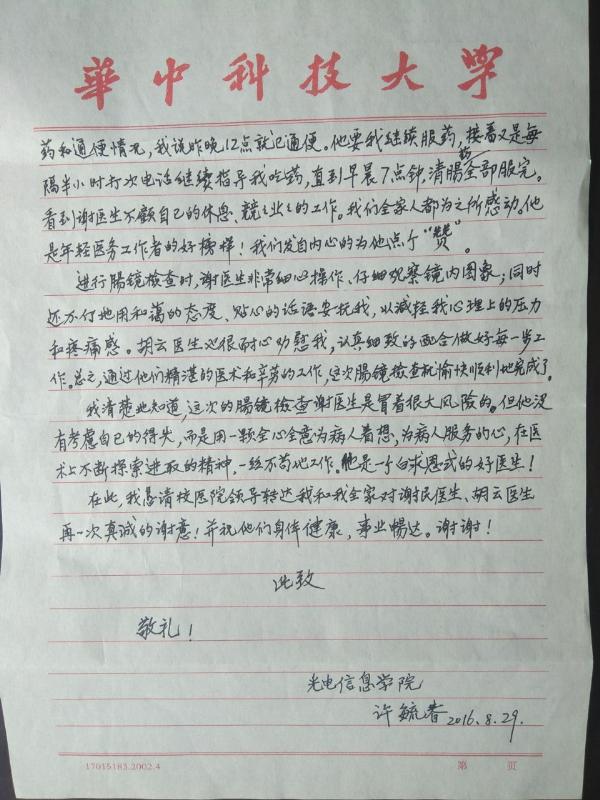 華中科技大学
药和通便情况，我说昨晚12点就已通便。他要我继续服药，接着又是每
隔半小时打次电话继续指导我吃药，直到早晨7点钟，清肠药全部服完。
看到谢医生不顾自己的休息、兢兢业业的工作。我们全家人都为之所感动。他
是年轻医务工作者的好榜样！我们发自内心的为他点个“赞”。
进行肠镜检查时，谢医生非常细心操作、仔细观察镜内图象；同时
还不停地用和蔼的态度、贴心的话语安抚我，以减轻我心理上的压力
和疼痛感。胡云医生也很耐心劝慰我，认真细致的配合做好每一步工
作。总之，通过他们精湛的医术和辛劳的工作，这次肠镜检查就愉快顺利地完成了。
我清楚地知道，这次的肠镜检查谢医生是冒着很大风险的。但他没
有考虑自己的得失，而是用一颗全心全意为病人着想，为病人服务的心，在医
术上不断探索进取的精神，一丝不苟地工作。他是一个白求恩式的好医生！
在此，我恳请校医院领导转达我和我全家对谢民医生、胡云医生
再一次真诚的谢意！并祝他们身体健康，事业畅达。谢谢！
此致
敬礼！
光电信息学院
许毓春 2016.8.29.
17015183.2002.4 第 页